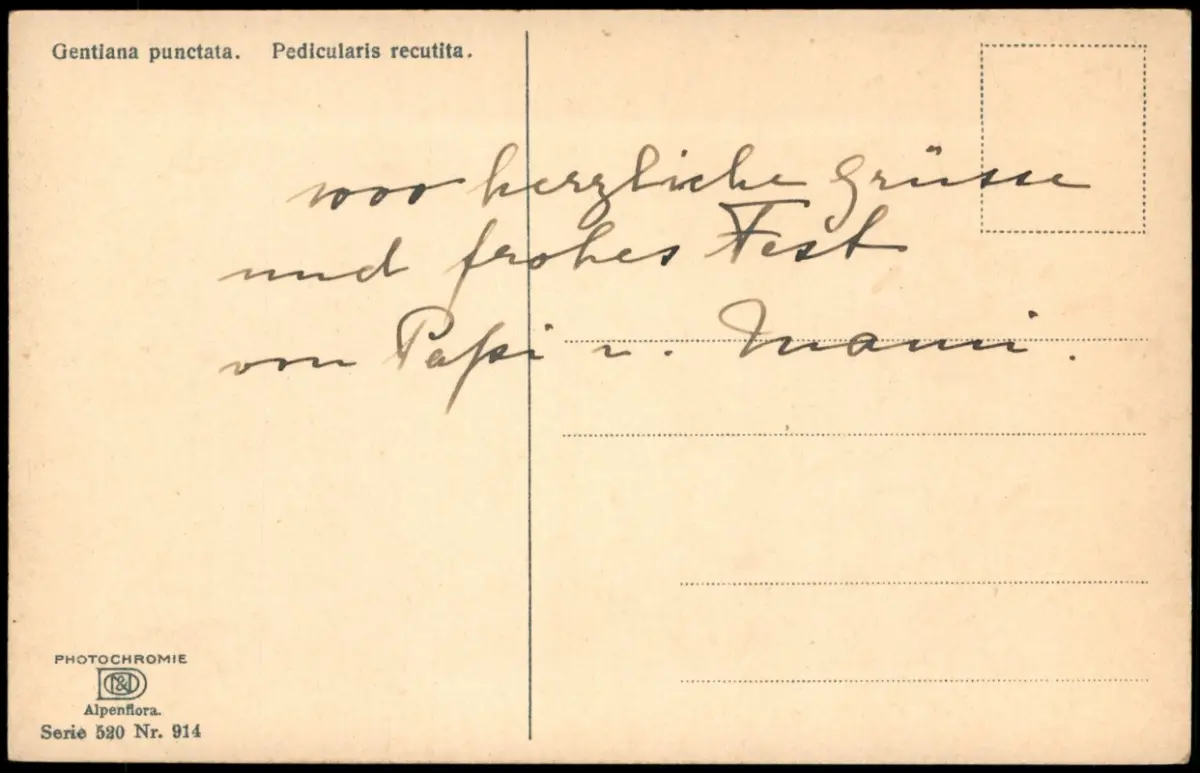 Gentiana punctata. Pedicularis recutita.
1000 herzliche Grüsse
und frohes Fest
von Papi u. Mami.
PHOTOCHROMIE
Alpenflora.
Serie 520 Nr. 914